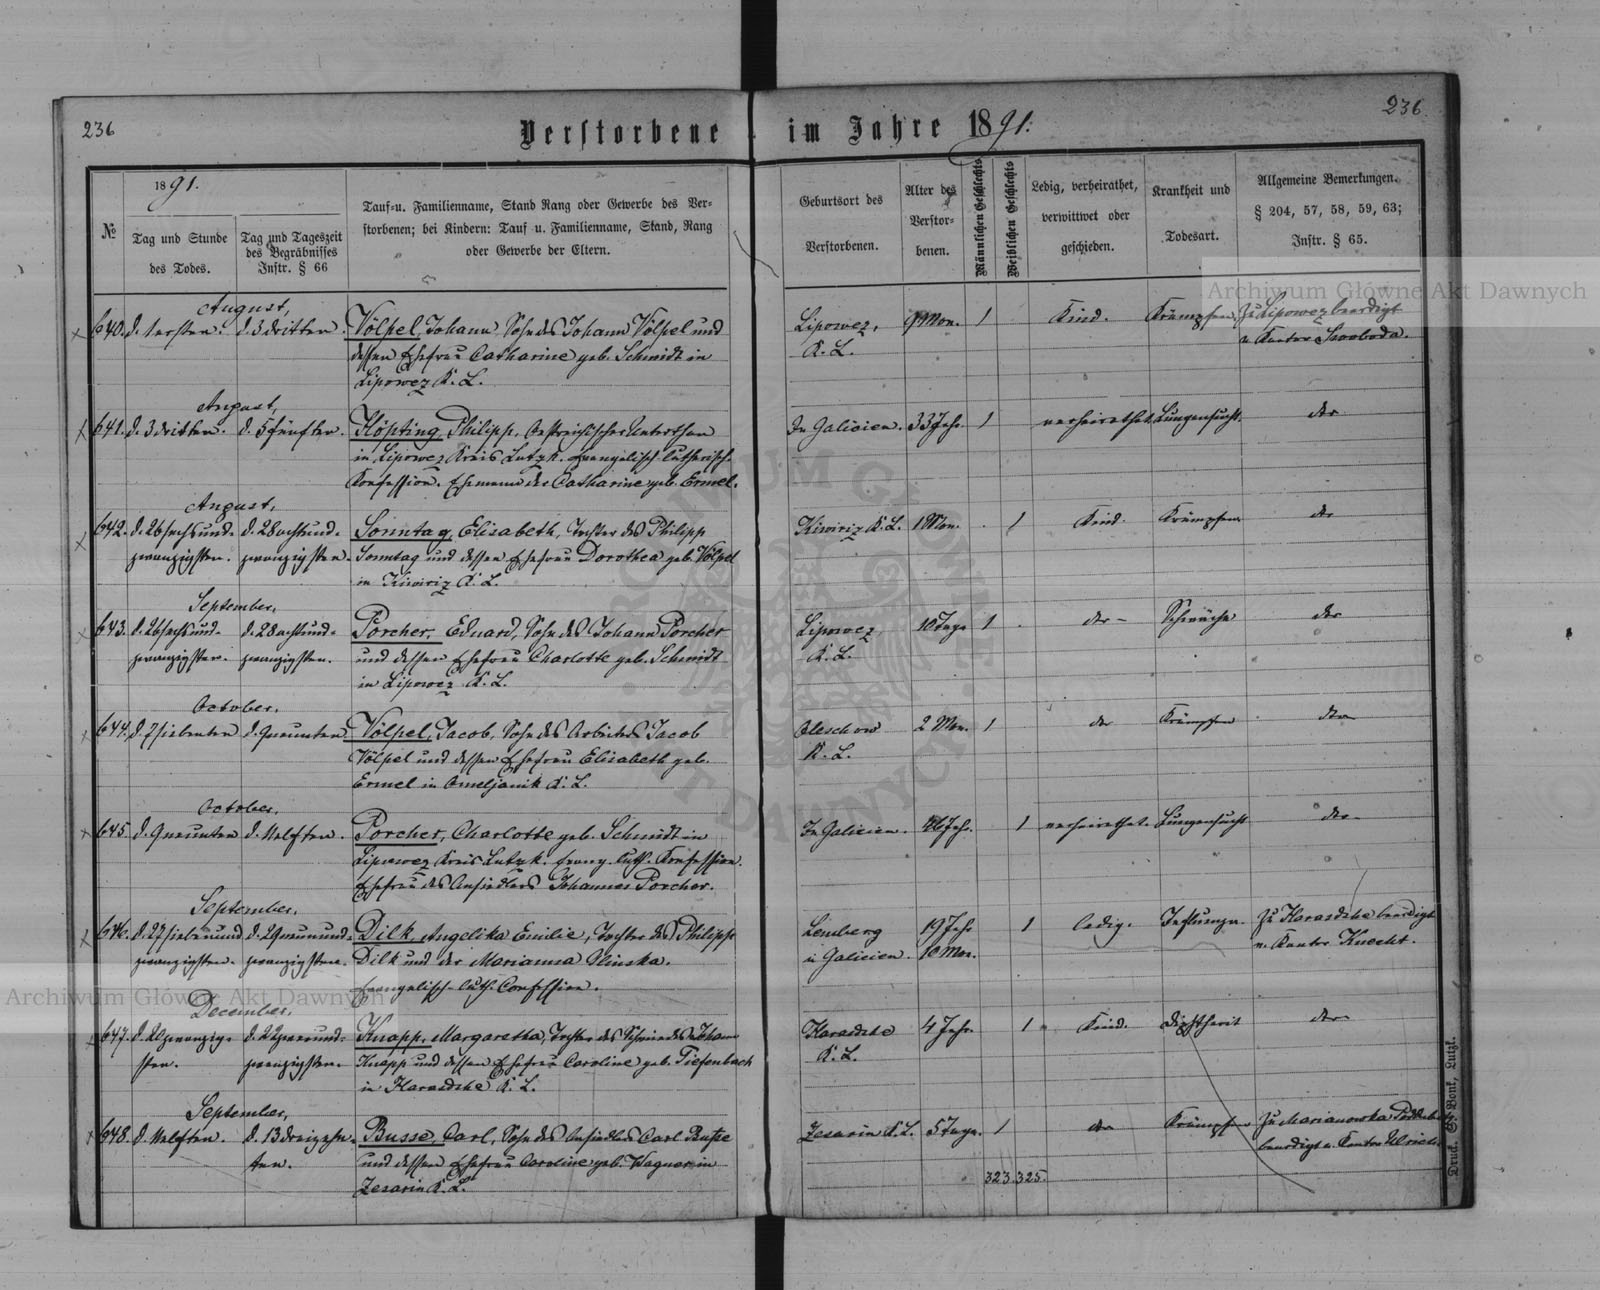 236
236
Verstorbene im Jahre 1891.
1891.
№
Tag und Stunde
des Todes.
Tag und Tageszeit
des Begräbnisses
Instr. § 66
Tauf=u. Familienname, Stand Rang oder Gewerbe des Ver=
storbenen; bei Kindern: Tauf u. Familienname, Stand, Rang
oder Gewerbe der Eltern.
Geburtsort des
Verstorbenen.
Alter des
Verstor=
benen.
Männlichen Geschlechts
Weiblichen Geschlechts
Ledig, verheirathet,
verwittwet oder
geschieden.
Krankheit und
Todesart.
Allgemeine Bemerkungen.
§ 204, 57, 58, 59, 63;
Instr. § 65.
August,
640. d. 1ersten. d. 3dritten. Völpel, Johann, Sohn des Johann Völpel und
dessen Ehefrau Catharine geb. Schmidt in
Lipowez K. L.
Lipowez, 9 Mon. 1 Kind. Krämpfen. Zu Lipowez beerdigt
K. L. v. Kantor Swoboda.
August,
641. d. 3dritten. d. 5fünften. Höpting, Philipp, Oestreichischer Unterthan
in Lipowez Kreis Lutzk. evangelisch-lutherisch.
Konfession. Ehemann der Catharine geb. Ermel.
In Galicien. 33 Jahr. 1 verheirathet. Lungensucht. der
August,
642. d. 26sechsund- d. 28achtund- Sonntag, Elisabeth, Tochter des Philipp
zwanzigsten. zwanzigsten. Sonntag und dessen Ehefrau Dorothea geb. Völpel
in Kiwiriz K. L.
Kiwiriz K. L. 1 Mon. 1 Kind. Krämpfen der
September,
643. d. 26sechsund- d. 28achtund- Porcher, Eduard, Sohn des Johann Porcher
zwanzigsten. zwanzigsten. und dessen Ehefrau Charlotte geb. Schmidt
in Lipowez K. L.
Lipowez 10 Tage 1 der Schwäche der
K. L.
October,
644. d. 7siebenten d. 9neunten Völpel, Jacob, Sohn des Arbeiters Jacob
Völpel und dessen Ehefrau Elisabeth geb.
Ermel in Omeljanik K. L.
2 Mon. 1 der Krämpfen der
K. L.
October,
645. d. 9neunten d. 11elften. Porcher, Charlotte geb. Schmidt in
Lipowez Kreis Lutzk. evang. luth. Konfession.
Ehefrau des Ansiedlers Johannes Porcher.
In Galicien. Jahr. 1 verheirathet. Lungensucht der
September,
646. d. 27siebenund d. 29neunund- Dilk, Angelika Emilie, Tochter des Philipp
zwanzigsten. zwanzigsten. Dilk und der Marianna
Evangelisch-luth. Confession.
Lemberg 19 Jahr 1 ledig. Influenza. Zu Harasdche beerdigt
i Galicien. 10 Mon. v. Kantor Knecht.
December,
647. d. 20zwanzig- d. 22zweiund- Knapp, Margaretha, Tochter des Schmiedes Johann
sten. zwanzigsten Knapp und dessen Ehefrau Caroline geb. Tiefenbach
in Harasdche K. L.
Harasdche 4 Jahr. 1 Kind. Diphtherit der
K. L.
September,
648. d. 11elften. d. 13dreizehn- Busse, Carl, Sohn des Ansiedlers Carl Busse
ten. und dessen Ehefrau Caroline geb. Wagner in
Zesarin K. L.
Zesarin K. L. 5 Tage. 1 der Krämpfen Zu Marianowka
beerdigt v. Kantor Ulrich.
323. 325.
Druck. S. Bonk, Lutzk.
Archiwum Główne Akt Dawnych
Archiwum Główne Akt Dawnych
ARCHIWUM GŁÓWNE AKT DAWNYCH